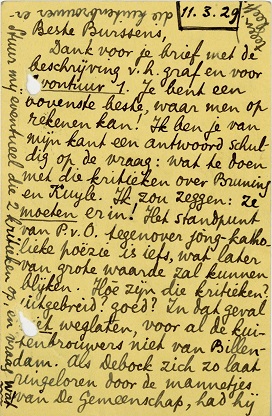 11.3.29
Beste Burssens,
Dank voor je brief met de
beschrijving v.h. graf en voor
vontuur 1. Je bent een
bovenste beste, waar men op
rekenen kan! Ik ben je van
mijn kant een antwoord schul-
dig op de vraag: wat te doen
met die kritieken over Bruning
en Kuyle. Ik zou zeggen: ze
moeten er in! Het standpunt
van P.v.O. tegenover jong-katho-
lieke poëzie is iets, wat later
van grote waarde zal kunnen
blijken. Hoe zijn die kritieken?
uitgebreid? goed? In dat geval
niet weglaten, voor al de kui-
tentrouwers niet van Billen-
dam. Als Deboek zich zo laat
ringeloren door de mannetjes
van De Gemeenschap, had hij
Stuur mij eventueel die 2 kritieken op, en vraag wat
die kuitenbrouwer er